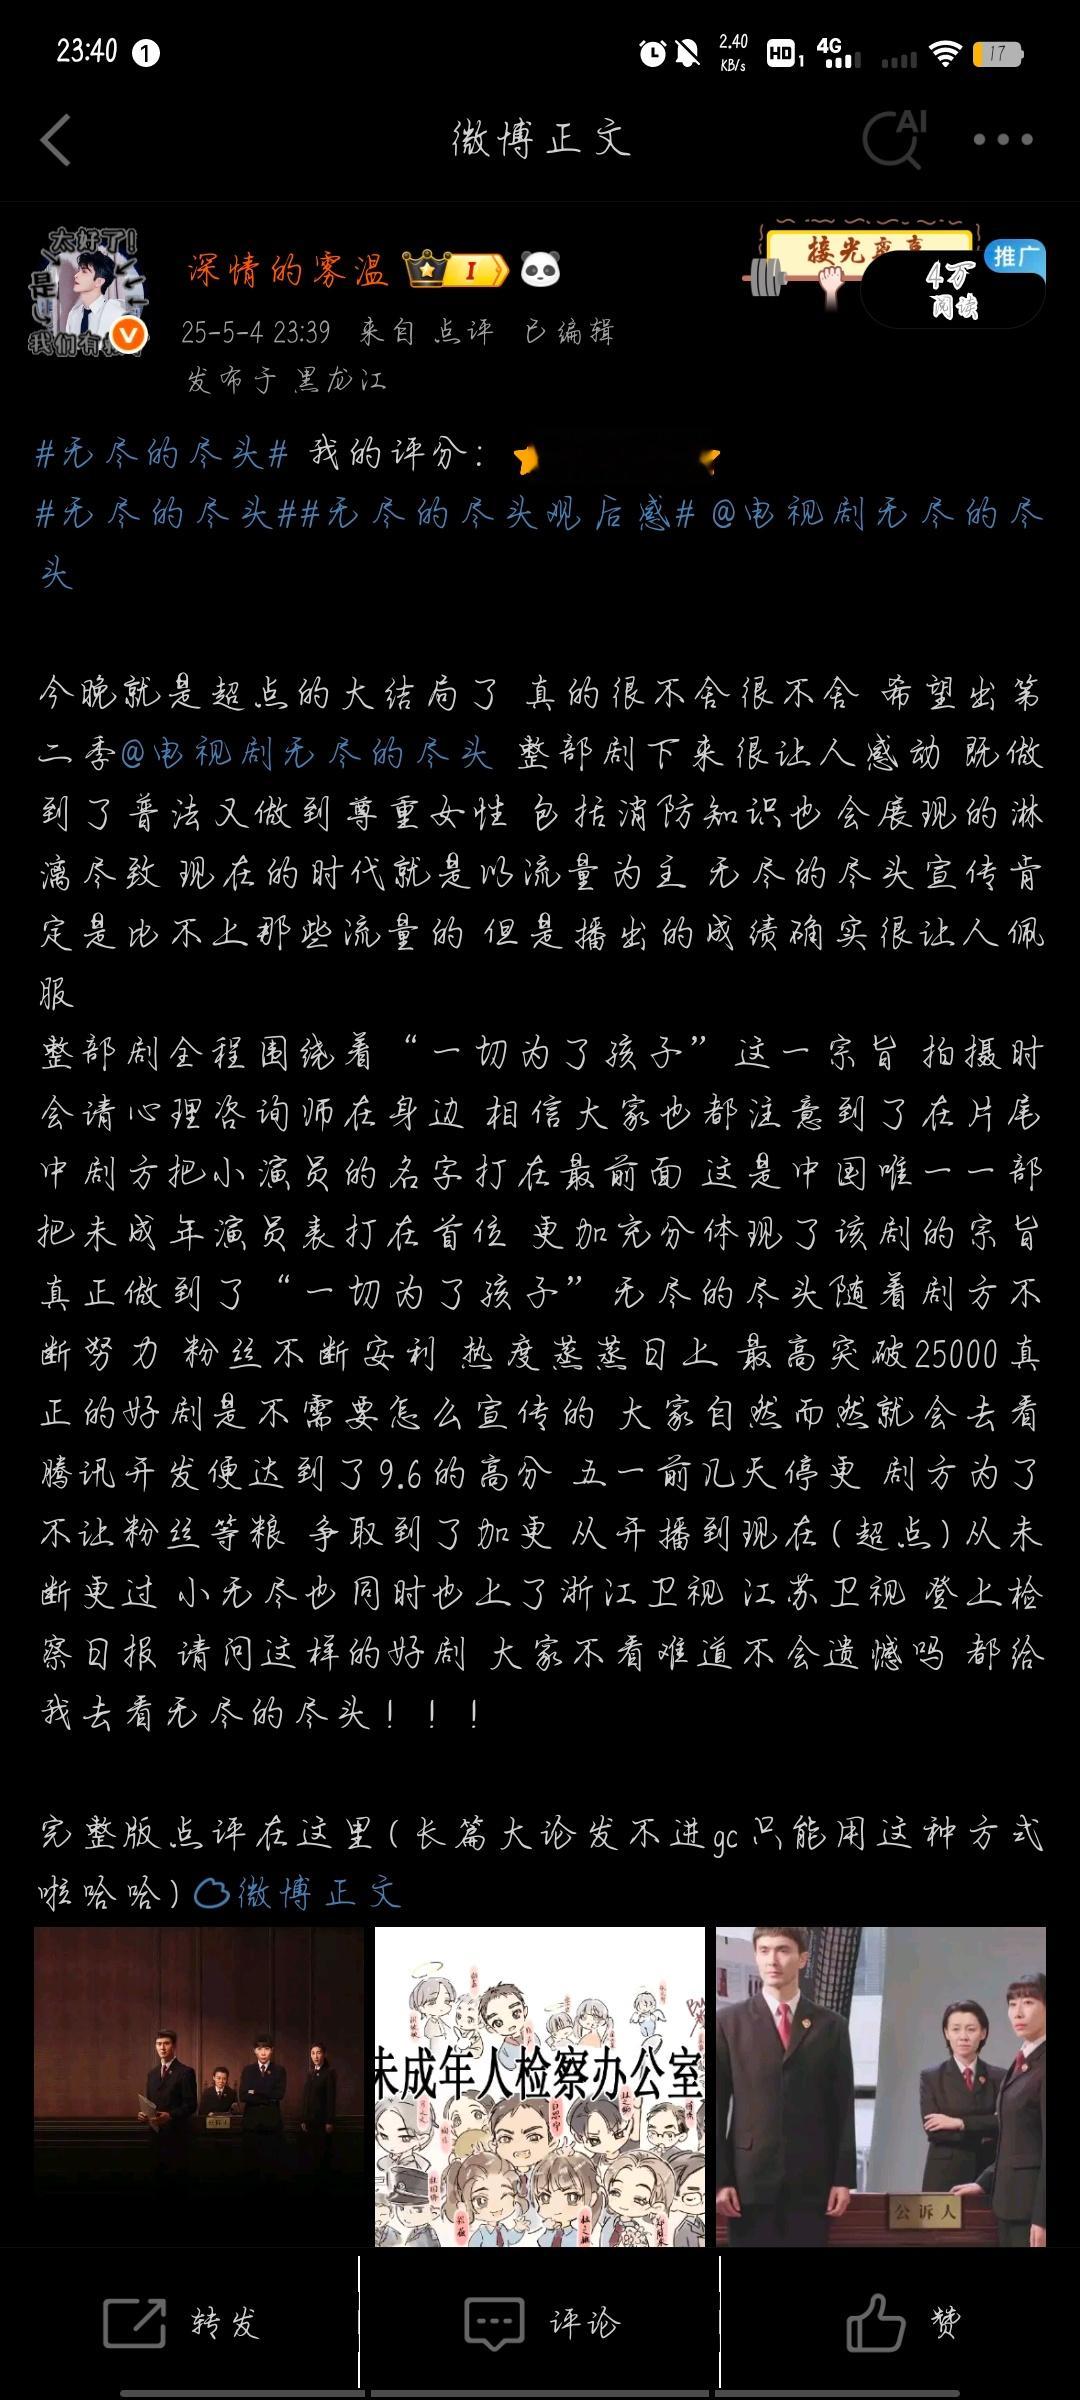 23:40 1 2.40 KB/s HD 1 4G 17
微博正文 AI
太好了!
是
我们有
深情的雾温 I
推广
4万
阅读
25-5-4 23:39 来自 点评 已编辑
发布于 黑龙江
#无尽的尽头# 我的评分:
#无尽的尽头##无尽的尽头观后感# @电视剧无尽的尽
头
今晚就是超点的大结局了 真的很不舍很不舍 希望出第
二季@电视剧无尽的尽头 整部剧下来很让人感动 既做
到了普法又做到尊重女性 包括消防知识也会展现的淋
漓尽致 现在的时代就是以流量为主 无尽的尽头宣传肯
定是比不上那些流量的 但是播出的成绩确实很让人佩
服
整部剧全程围绕着“一切为了孩子”这一宗旨 拍摄时
会请心理咨询师在身边 相信大家也都注意到了在片尾
中剧方把小演员的名字打在最前面 这是中国唯一一部
把未成年演员表打在首位 更加充分体现了该剧的宗旨
真正做到了“一切为了孩子”无尽的尽头随着剧方不
断努力 粉丝不断安利 热度蒸蒸日上 最高突破25000真
正的好剧是不需要怎么宣传的 大家自然而然就会去看
腾讯开发便达到了9.6的高分 五一前几天停更 剧方为了
不让粉丝等粮 争取到了加更 从开播到现在(超点)从未
断更过 小无尽也同时也上了浙江卫视 江苏卫视 登上检
察日报 请问这样的好剧 大家不看难道不会遗憾吗 都给
我去看无尽的尽头！！！
完整版点评在这里(长篇大论发不进gc只能用这种方式
啦哈哈)微博正文
未成年人检察办公室
公诉人
转发 评论 赞